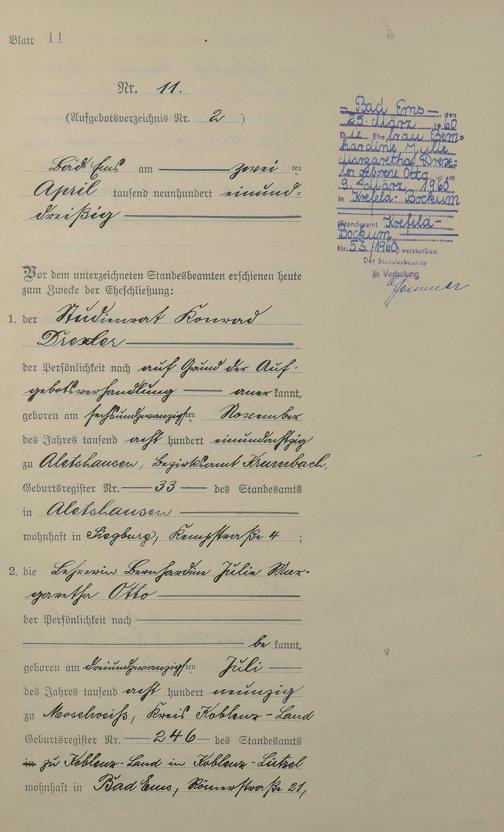 Blatt 11
Nr. 11.
(Aufgebotsverzeichnis Nr. 2 )
Bad Ems am zwei ten
April tausend neunhundert einund=
dreißig
Vor dem unterzeichneten Standesbeamten erschienen heute
zum Zwecke der Eheschließung:
1. der Studienrat Konrad
Drexler
der Persönlichkeit nach auf Grund der Auf-
gebotsverhandlung aner kannt,
geboren am sechsundzwanzigsten November
des Jahres tausend acht hundert einundachtzig
zu Aletshausen, Bezirksamt Krumbach,
Geburtsregister Nr. 33 des Standesamts
in Aletshausen
wohnhaft in Siegburg, Kempstraße 4 ;
2. die Lehrerin Bernhardine Julie Mar-
garetha Otto
der Persönlichkeit nach
be kannt,
geboren am dreiundzwanzigsten Juli
des Jahres tausend acht hundert neunzig
zu Moselweiß, Kreis Koblenz-Land
Geburtsregister Nr. 246 des Standesamts
in zu Koblenz-Land in Koblenz-Lützel
wohnhaft in Bad Ems, Römerstraße 21,
Bad Ems den
25. März 1960
D ie Ehefrau Bern
hardine Julie
Margaretha Drex-
ler geborene Otto ist am
9. März 1960
in Krefeld-Bockum
(Standesamt Krefeld-
Bockum
Nr. 53/1960) verstorben.
Der Standesbeamte
In Vertretung